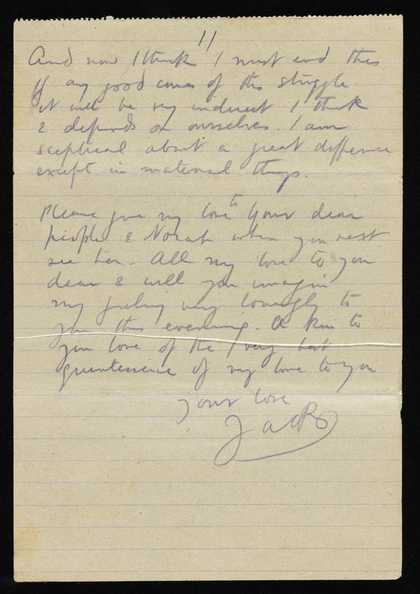 11
And now I think I must end this
If any good comes of this struggle
it will be very indirect I think
& depends on ourselves. I am
sceptical about a great difference
except in material things.
Please give my love to your dear
people & Norah when you next
see her. All my love to you
dear & will you imagine
my feeling very lovingly to
you this evening. A kiss to
you love of the very best
quintessence of my love to you
Your love
Jack